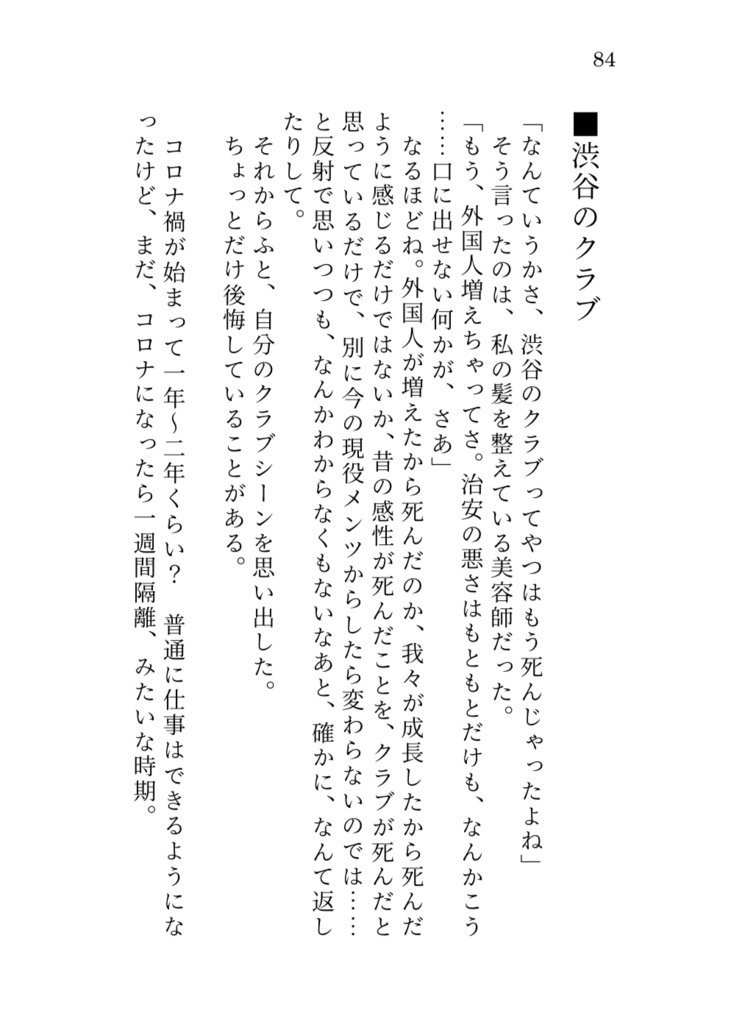 84
■渋谷のクラブ
「なんていうかさ、渋谷のクラブってやつはもう死んじゃったよね」
そう言ったのは、私の髪を整えている美容師だった。
「もう、外国人増えちゃってさ。治安の悪さはもともとだけも、なんかこう
……口に出せない何かが、さあ」
なるほどね。外国人が増えたから死んだのか、我々が成長したから死んだ
ように感じるだけではないか、昔の感性が死んだことを、クラブが死んだと
思っているだけで、別に今の現役メンツからしたら変わらないのでは……
と反射で思いつつも、なんかわからなくもないなあと、確かに、なんて返し
たりして。
それからふと、自分のクラブシーンを思い出した。
ちょっとだけ後悔していることがある。
コロナ禍が始まって一年～二年くらい？　普通に仕事はできるようにな
ったけど、まだ、コロナになったら一週間隔離、みたいな時期。